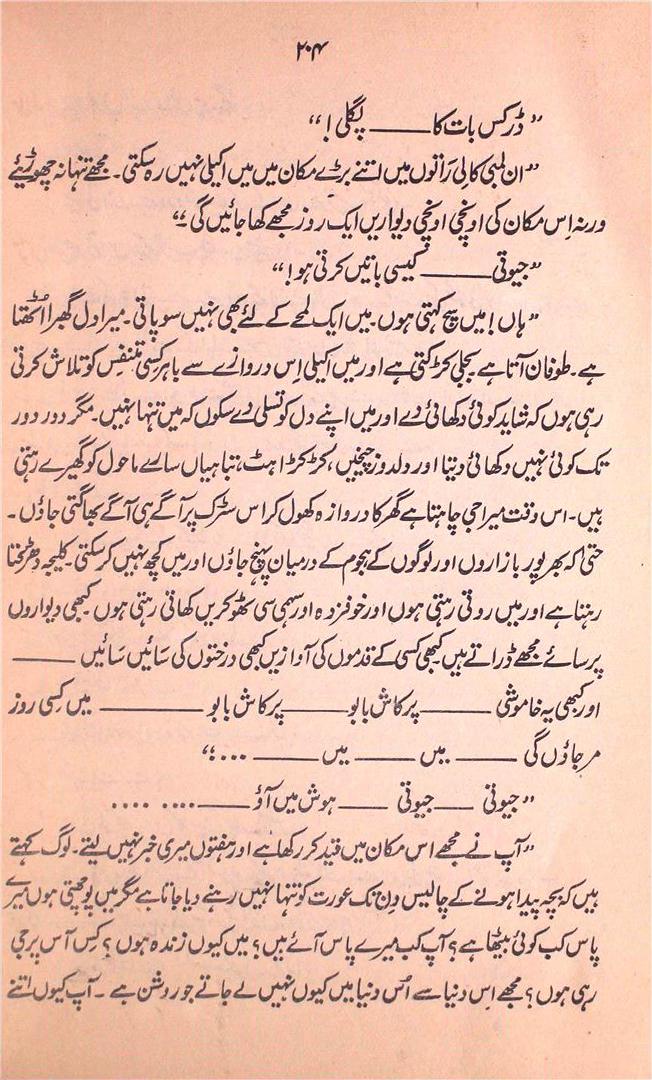 ۲۰۴
”ڈر کس بات کا ——— پگلی!“
”ان لمبی کالی راتوں میں اتنے بڑے مکان میں میں اکیلی نہیں رہ سکتی۔ مجھے تنہا نہ چھوڑیئے
ورنہ اِس مکان کی اونچی اونچی دیواریں ایک روز مجھے کھا جائیں گی۔“
”جیوتی ——— کیسی باتیں کرتی ہو!“
”ہاں! میں سچ کہتی ہوں۔ میں ایک لمحے کے لئے بھی نہیں سو پاتی۔ میرا دل گھبرا اُٹھتا
ہے۔ طوفان آتا ہے بجلی کڑکتی ہے اور میں اکیلی اِس دروازے سے باہر کِسی متنفس کو تلاش کرتی
رہی ہوں کہ شاید کوئی دکھائی دے اور میں اپنے دل کو تسلی دے سکوں کہ میں تنہا نہیں۔ مگر دور دور
تک کوئی نہیں دکھائی دیتا اور دلدوز چیخیں، کڑکڑاہٹ، تباہیاں سارے ماحول کو گھیرے رہتی
ہیں۔ اس وقت میرا جی چاہتا ہے گھر کا دروازہ کھول کر اس سڑک پر آگے ہی آگے بھاگتی جاؤں۔
حتیٰ کہ بھرپور بازاروں اور لوگوں کے ہجوم کے درمیان پہنچ جاؤں اور میں کچھ نہیں کر سکتی۔ کلیجہ دھڑکتا
رہتا ہے اور میں روتی رہتی ہوں اور خوفزدہ اور سہمی سی ٹھوکریں کھاتی رہتی ہوں کبھی دیواروں
پر سائے مجھے ڈراتے ہیں کبھی کسی کے قدموں کی آوازیں کبھی درختوں کی سائیں سائیں ———
اور کبھی یہ خاموشی ——— پرکاش بابو ——— پرکاش بابو ——— میں کِسی روز
مر جاؤں گی ——— میں ——— میں ——— ...“
”جیوتی ——— جیوتی ——— ہوش میں آؤ ——— .... ....
”آپ نے مجھے اس مکان میں قید کر رکھا ہے اور ہفتوں میری خبر نہیں لیتے۔ لوگ کہتے
ہیں کہ بچہ پیدا ہونے کے چالیس دِن تک عورت کو تنہا نہیں رہنے دیا جاتا ہے مگر میں پوچھتی ہوں میرے
پاس کب کوئی بیٹھا ہے؟ آپ کب میرے پاس آئے ہیں؟ میں کیوں زندہ ہوں؟ کِس آس پر جی
رہی ہوں؟ مجھے اِس دنیا سے اُس دنیا میں کیوں نہیں لے جاتے جو روشن ہے۔ آپ کیوں اتنے